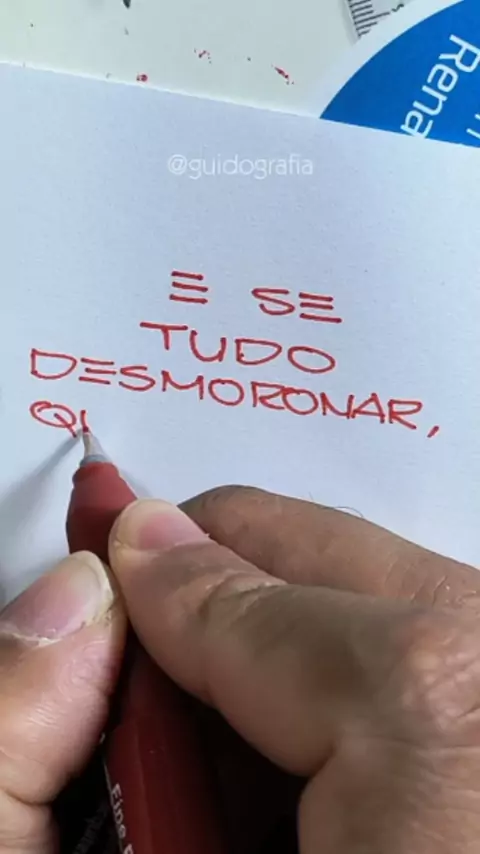 Rena
@guidografia
E SE
TUDO
DESMORONAR,
QU
Eine